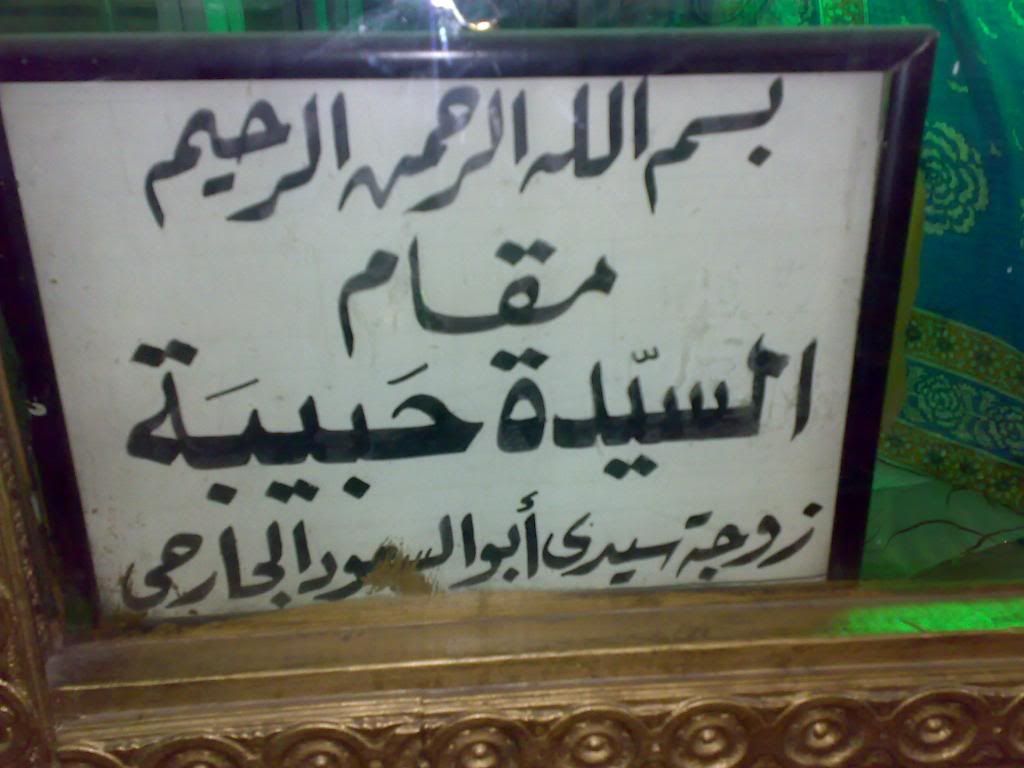 بسم الله الرحمن الرحيم
مقام
السيّدة حَبيبَة
زوجة سيدى أبو السعود الجارحى